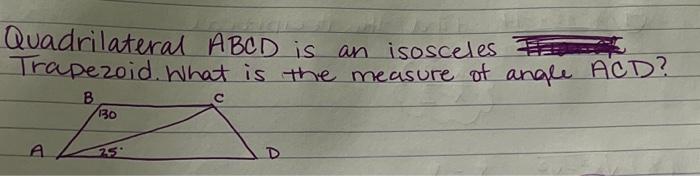 Quadrilateral ABCD is an isosceles
Trapezoid. What is the measure of angle ACD?
B C
130
A 25° D